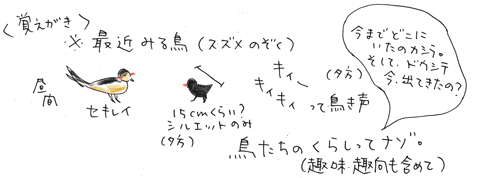 〈覚えがき〉
※ 最近みる鳥(スズメのぞく)
昼間
セキレイ
15cmくらい?
シルエットのみ
(夕方)
キィー
キィキィ って鳥き声
(夕方)
今までどこに
いたのカシラ。
そして、ドウシテ
今、出てきたの?
鳥たちのくらしってナゾ。
(趣味・趣向も含めて)